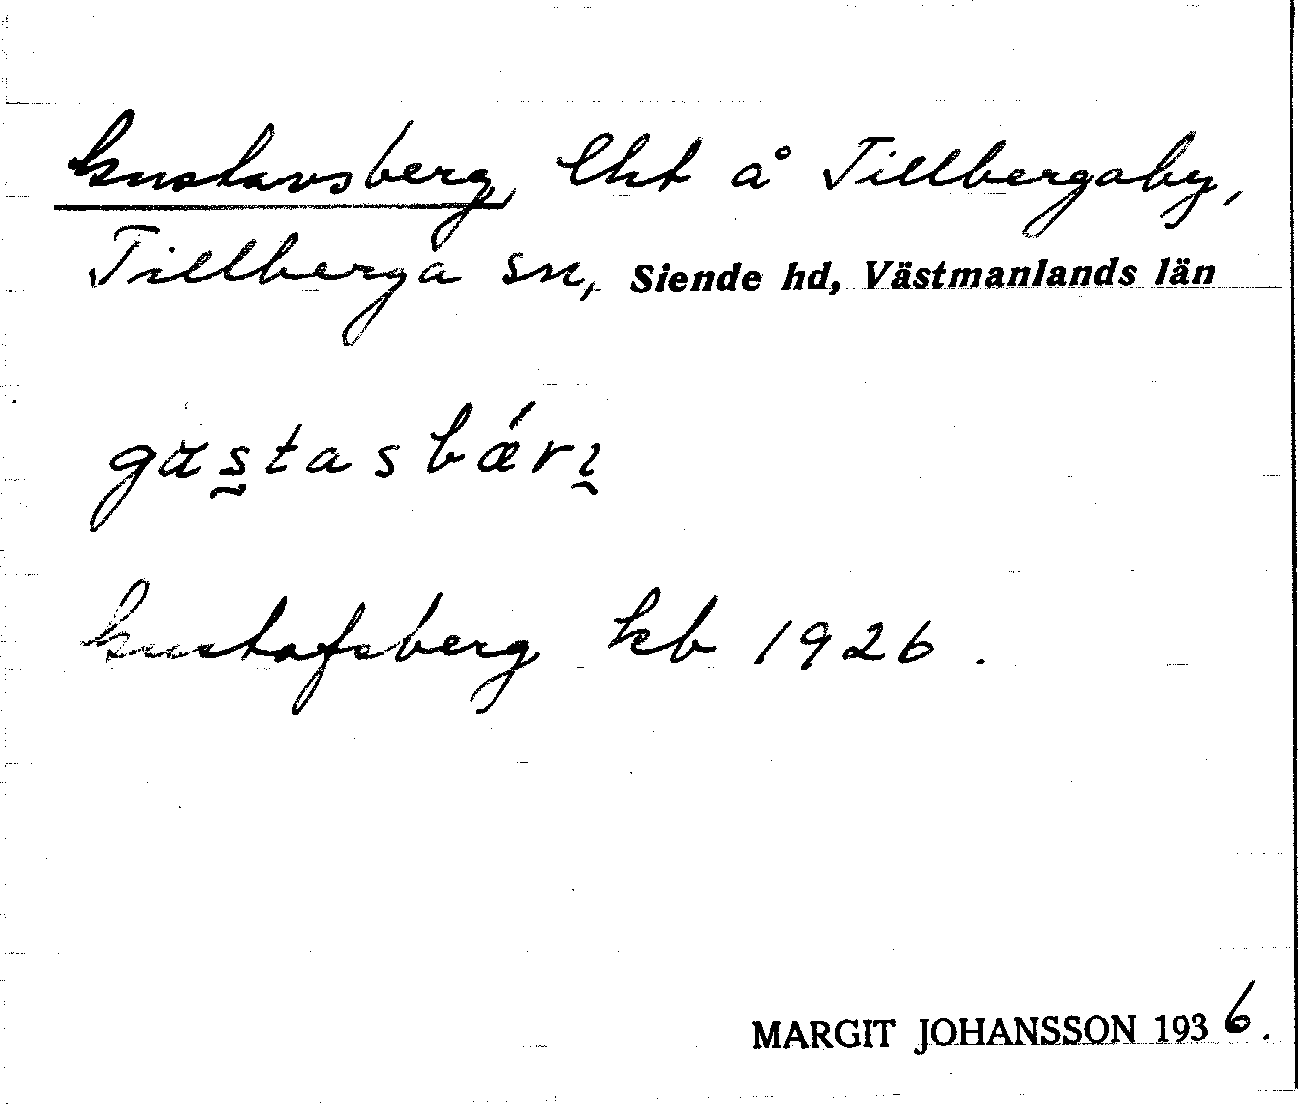 Gustavsberg, lht å Tillbergaby,
Tillberga sn, Siende hd, Västmanlands län
gustasbǽrı
Gustafsberg kb 1926.
MARGIT JOHANSSON 1936.